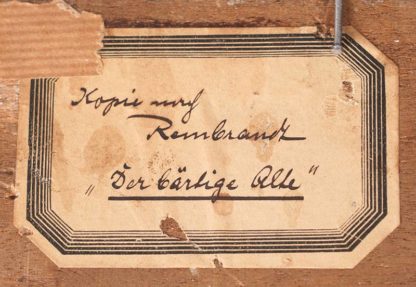 Kopie nach
Rembrandt
„Der bärtige Alte“